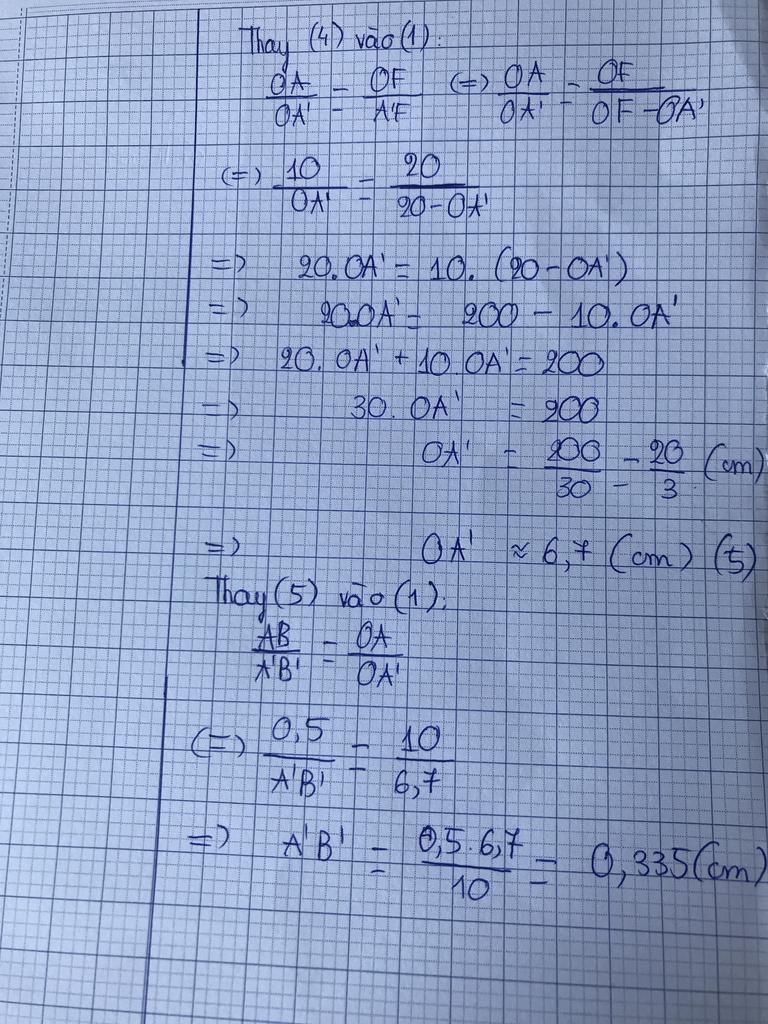 Thay (4) vào (1):
OA/OA' = OF/A'F (=) OA/OA' = OF/OF - OA'
(=) 10/OA' = 20/20 - OA'
=> 20. OA' = 10. (20 - OA')
=> 20.OA' = 200 - 10. OA'
=> 20. OA' + 10 OA' = 200
=> 30. OA' = 200
=> OA' = 200/30 = 20/3 (cm)
=> OA' ≈ 6,7 (cm) (5)
Thay (5) vào (1):
AB/A'B' = OA/OA'
(=) 0,5/A'B' = 10/6,7
=> A'B' = 0,5.6,7/10 = 0,335 (cm)